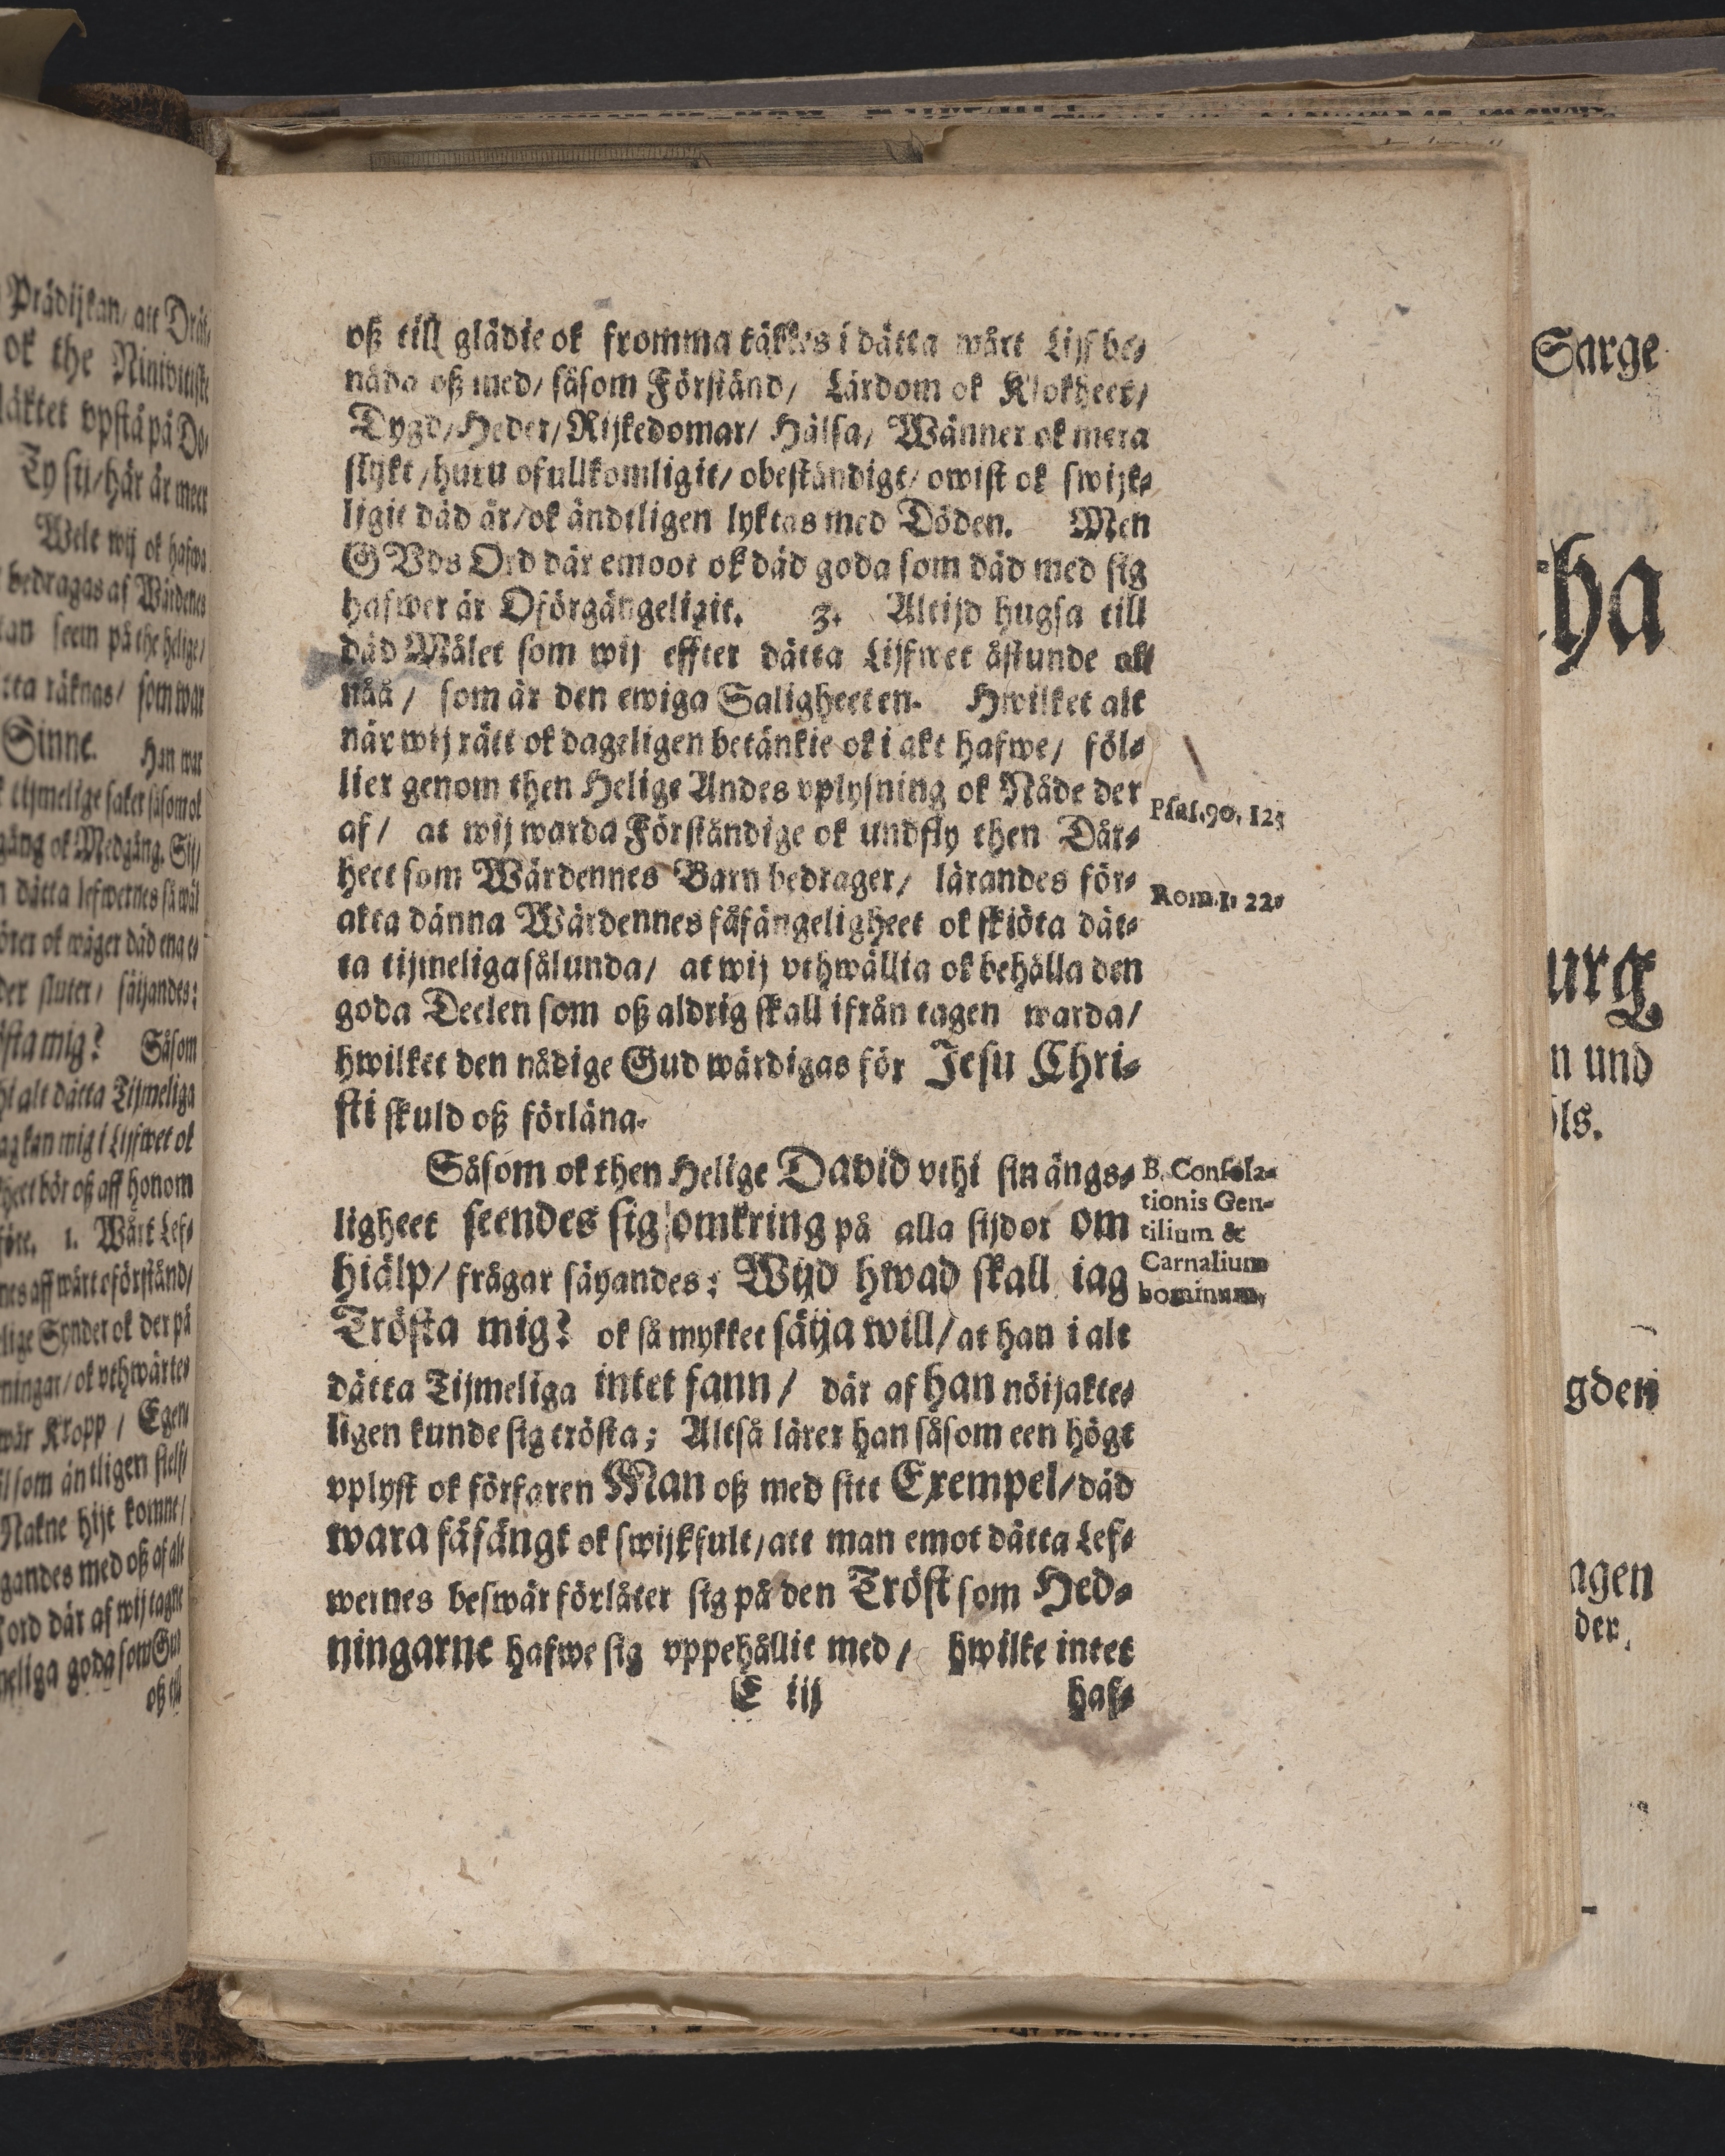 oß till glädie ok fromma täkkes i dätta wårt Lijf be-
nåda oß med/ såsom Förstånd/ Lärdom ok Klokheet/
Dygd/ Heder/ Rijkedomar/ Hälsa/ Wänner ok mera
slykt/ huru ofullkomligit/ obeständigt/ owist ok swijk-
ligit däd är/ ok ändtligen lyktas med Döden. Men
GVds Ord där emoot ok däd goda som däd med sig
hafwer är Oförgängeligit. 3. Altijd hugsa till
däd Målet som wij effter dätta Lijfwet åstunde all
nåå/ som är den ewiga Saligheeten. Hwilket alt
när wij rätt ok dageligen betänkie ok i akt hafwe/ föl-
lier genom then Helige Andes vplysning ok Nåde der
af/ at wij warda Förståndige ok undfly then Dår-
heet som Wärdennes Barn bedrager/ lärandes för-
akta dänna Wärdennes fåfängeligheet ok skiöta dät-
ta tijmeliga sålunda/ at wij vthwällia ok behålla den
goda Deelen som oß aldrig skall ifrån tagen warda/
hwilket den nådige Gud wärdigas för Jesu Chri-
sti skuld oß förläna.
Psal. 90, 12;
Rom. 1. 22.
Såsom ok then Helige David vthi sin ängs-
ligheet seendes sig omkring på alla sijdor om
hiälp/ frågar säyandes: Wijd hwad skall iag
Trösta mig? ok så mykket sätja will/ at han i alt
dätta Tijmeliga intet fann/ där af han nöijakte-
ligen kunde sig trösta; Altså lärer han såsom een högt
vplyst ok förfaren Man oß med sitt Exempel/ däd
wara fåfängt ok swijkfult/ att man emot dätta Lef-
wernes beswär förlåter sig på den Tröst som Hed-
ningarne hafwe sig vppehållit med/ hwilke intet
E iij haf-
B. Consola-
tionis Gen-
tilium &
Carnalium
hominum,
Prädijkan/ att
ok the
släktet vpstå på Do-
Ty sij/ här är meer
Welt wij ok hafwa
bedragas af Wärdenes
kan seem på the helige/
räknas/ som war
Sinne. Han war
tijmelige saker såsom ok
gång ok Medgång. Sij/
dätta lefwernes så wäl
ok wäger däd ena e-
der sluter/ säijandes:
trösta mig? Såsom
alt dätta Tijmeliga
kan mig i Lijfwet ok
bör oß aff honom
1. Wårt Lef-
aff wårt oförstånd/
Synder ok der på
ok vthwärtes
wår Kropp/ Egen
som äntligen
Nakne hijt komne/
med oß af alt
ord där af wij tagne
goda som Gud
oß till
Sarge
tha
urg
n und
ls.
gden
agen
der,